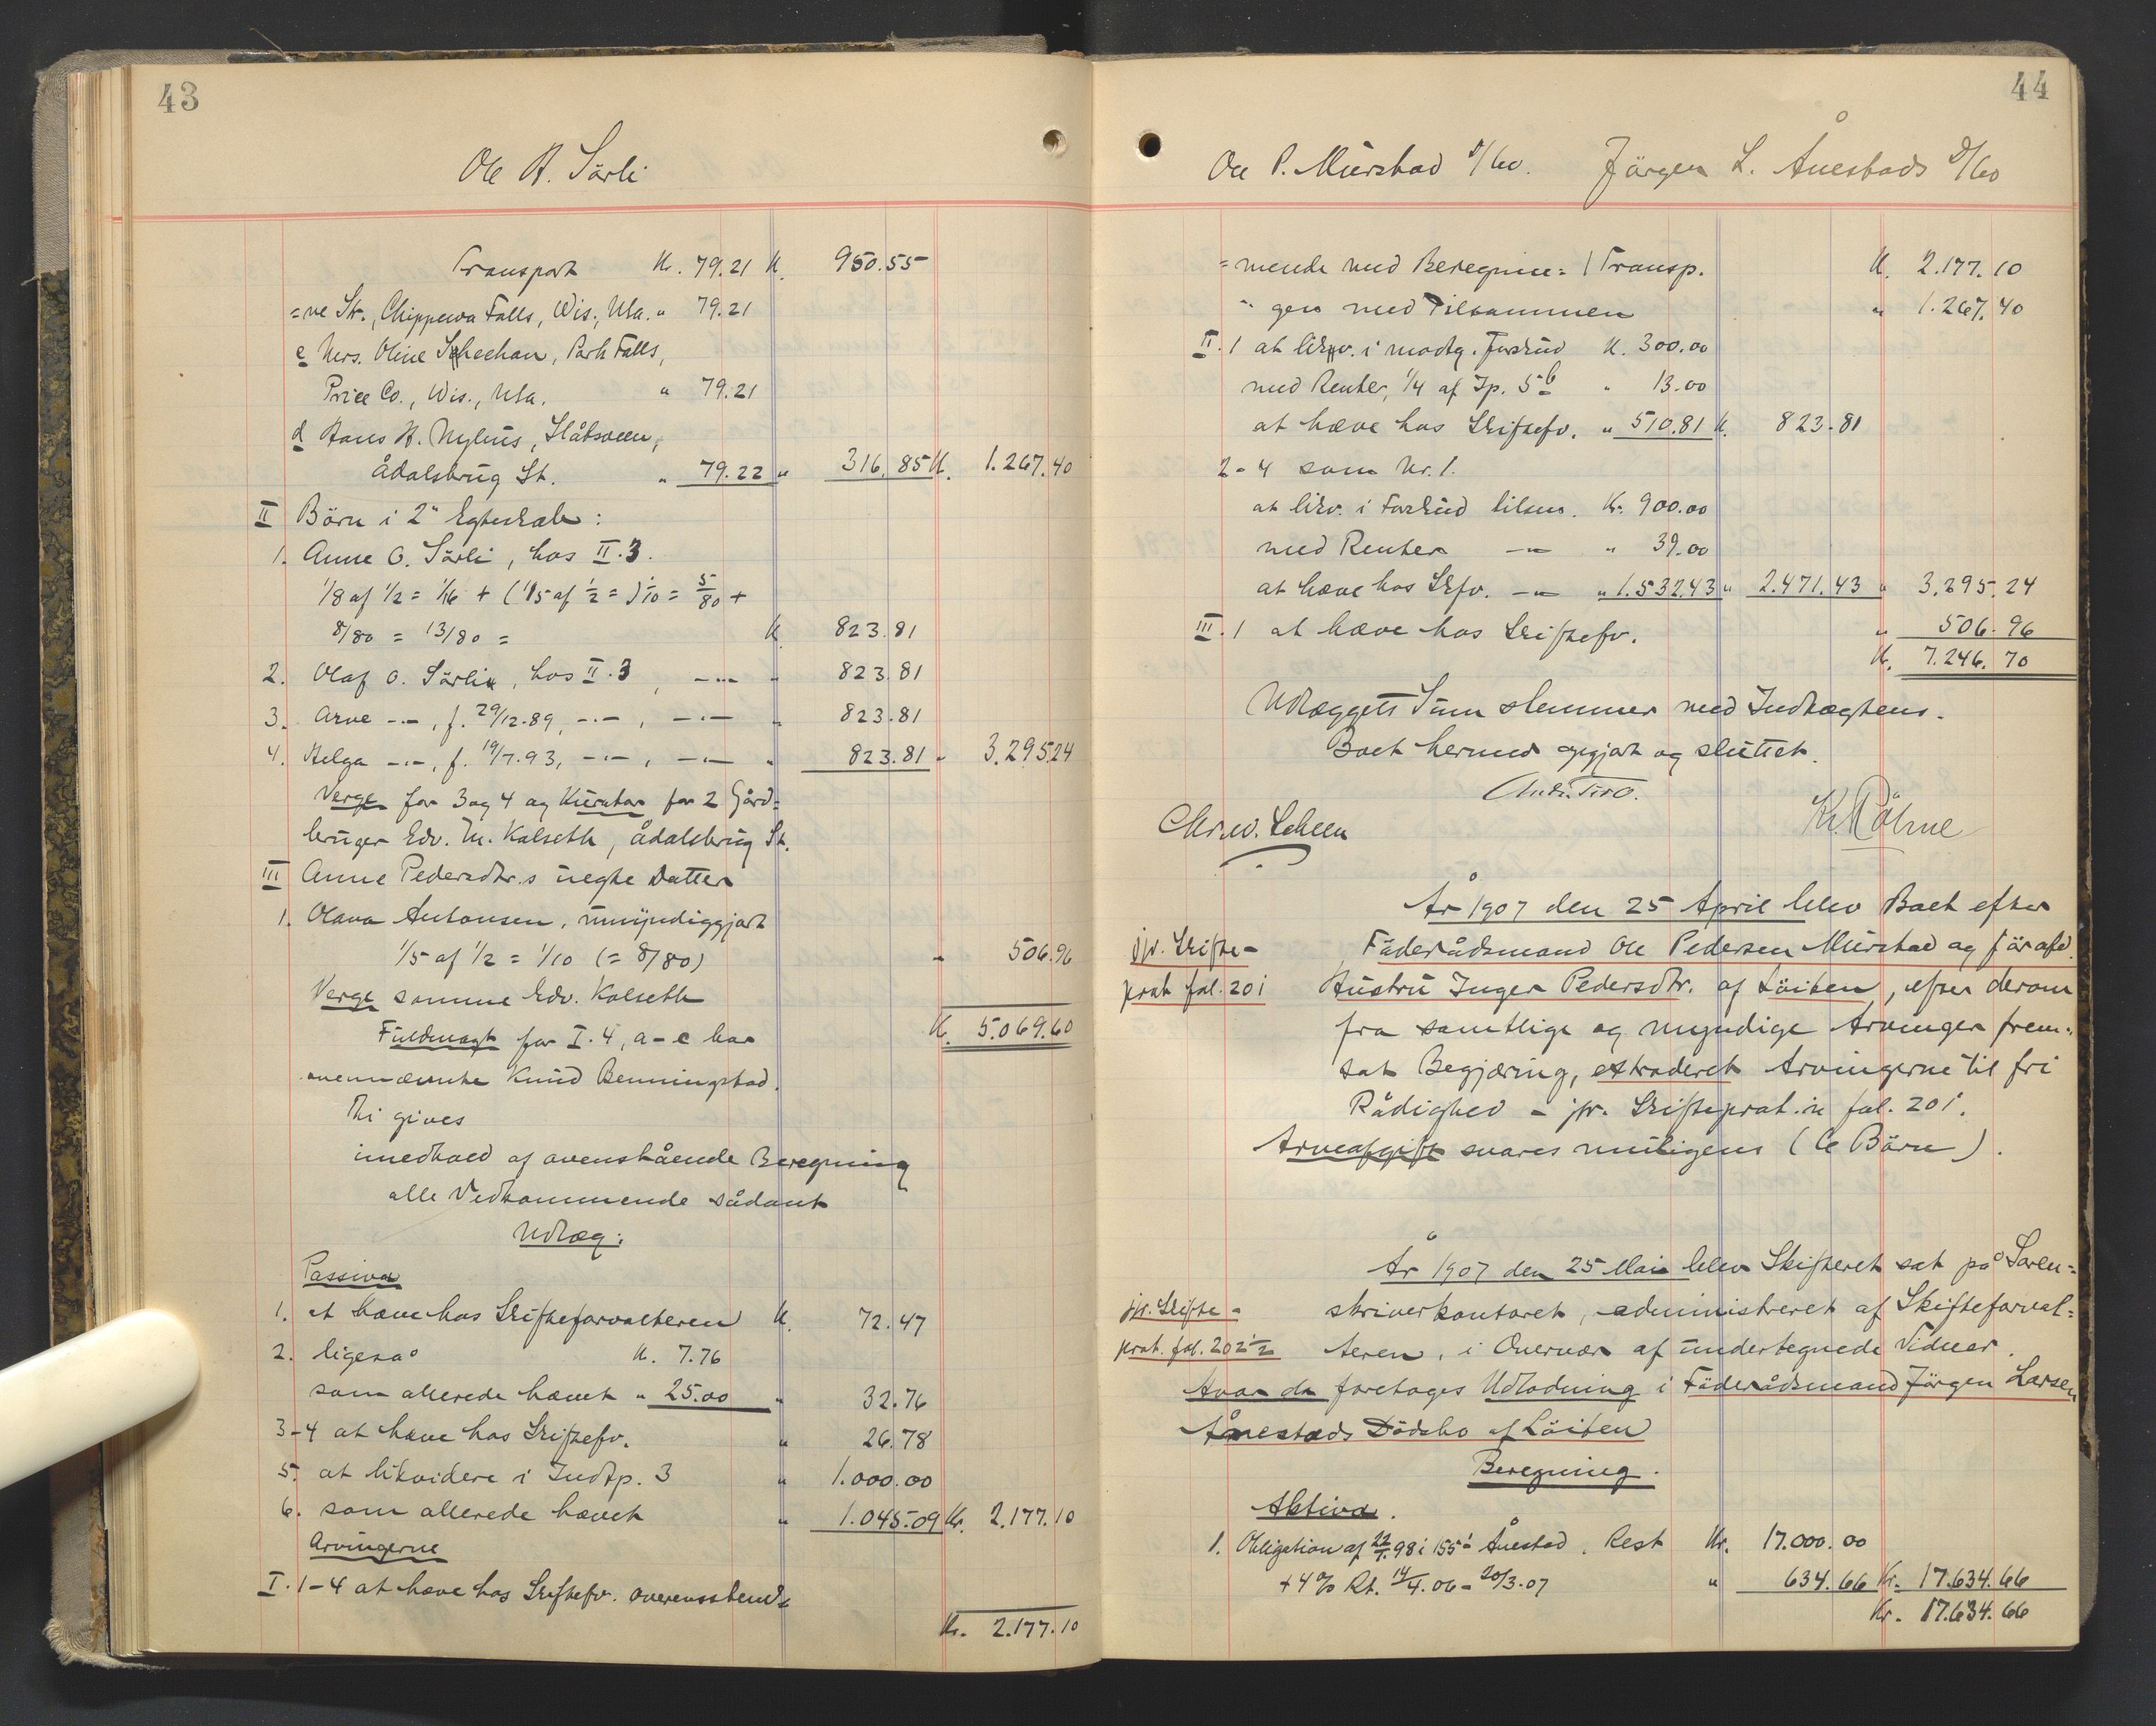 43
Ole A. Sörli
Transport Kr. 79.21 K. 950.55
=ve Str., Chippewa Falls, Wis., Usa. " 79.21
c Mrs. Oline Scheehan, Park Falls,
Price Co., Wis., Usa. " 79.21
d Hans H. Nyhus, Slåtsveen,
Ådalsbrug St. " 79.22 " 316.85 K. 1.267.40
II Börn i 2" Egteskab:
1. Anne O. Sörli, hos II.3.
1/8 af 1/2 = 1/16 + (1/5 af 1/2 =) 1/10 = 5/80 +
8/80 = 13/80 = K 823.81
2. Olaf O. Sörli, hos II.3, -"- " 823.81
3. Arve -"-, f. 29/12.89, -"-, -"- " 823.81
4. Helga -"-, f. 19/7.93, -"-, -"- " 823.81 " 3.295.24
Verge for 3 og 4 og Kurator for 2 Gård=
bruger Edv. M. Kolseth, Ådalsbrug St.
III Anne Pedersdtr.s uegte Datter
1. Olava Antonsen, umyndiggjort
1/5 af 1/2 = 1/10 (= 8/80) " 506.96
Verge samme Edv. Kolseth
K. 5.069.60
Fuldmagt for I.4, a-c har
ovennævnte Knud Benningstad.
Thi gives
imedhold af ovenstående Beregning
alle Vedkommende sådant
Udlæg:
Passiva
1. at hæve hos Skifteforvalteren K. 72.47
2. ligeså K. 7.76
som allerede hævet " 25.00 " 32.76
3-4 at hæve hos Skiftefv. " 26.78
5. at likvidere i Indtp. 3 " 1.000.00
6. som allerede hævet " 1.045.09 Kr. 2.177.10
Arvingerne
I. 1-4 at hæve hos Skiftefv. overensstem=
Kr. 2.177.10
44
Ole P. Mürstad D/bo. Jörgen L. Ånestads D/bo
=mende med Beregnin= | Transp. K. 2.177.10
" gen med Tilsammen " 1.267.40
II.1 at likv. i modtg. Forskud K. 300.00
med Renter, 1/4 af Ip. 5 b " 13.00
at hæve hos Skiftefv. " 510.81 K. 823.81
2-4 som Nr. 1.
at likv. i Forskud tilsm. Kr. 900.00
med Renter -"- " 39.00
at hæve hos Skfv. -"- " 1.532.43 " 2.471.43 " 3.295.24
III.1 at hæve hos Skiftefv. " 506.96
K. 7.246.70
Udlæggets Sum stemmer med Indtægtens.
Boet hermed opgjort og sluttet.
Chr. Scheen Kr. Röhne
År 1907 den 25 April blev Boet efter
jfr. Skifte- Föderådsmand Ole Pedersen Mürstad og för afd.
prot fol. 201 Hustru Inger Pedersdtr. af Löiten, efter derom
fra samtlige og myndige Arvinger frem=
sat Begjæring, extraderet Arvingerne til fri
Rådighed - jfr. Skifteprot.n fol. 201.
Arveafgift svares muligens (6 Börn).
År 1907 den 25 Mai blev Skifteret sat på Soren=
jfr. Skifte- skriverkontoret, administreret af Skifteforval=
prot. fol. 202 1/2 teren, i Overvær af undertegnede Vidner.
Hvor da foretoges Udlodning i Föderådsmand Jörgen Larsen
Ånestads Dödsbo af Löiten
Beregning.
Aktiva.
1. Obligation af 22/7.98 i 155 1 Ånestad. Rest Kr. 17.000.00
+ 4% Rt. 14/4.06 - 20/3.07 " 634.66 Kr. 17.634.66
Kr. 17.634.66